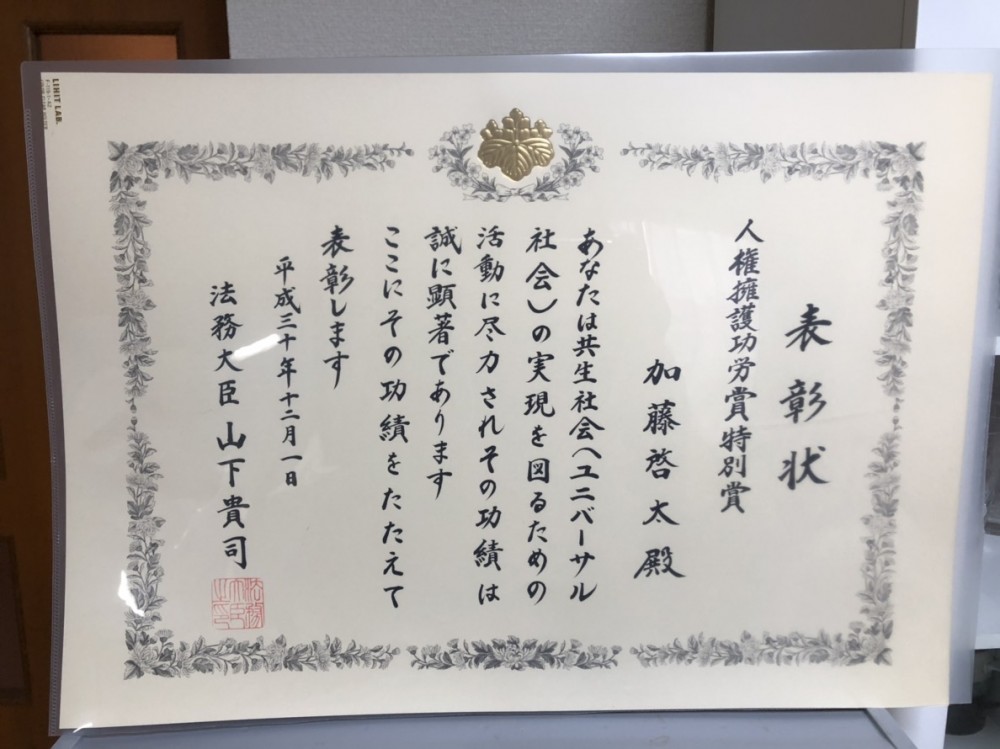 表彰状
人権擁護功労賞特別賞
加藤啓太殿
あなたは共生社会(ユニバーサル
社会)の実現を図るための
活動に尽力されその功績は
誠に顕著であります
ここにその功績をたたえて
表彰します
平成三十年十二月一日
法務大臣 山下貴司
法務大臣之印
LIHIT LAB.